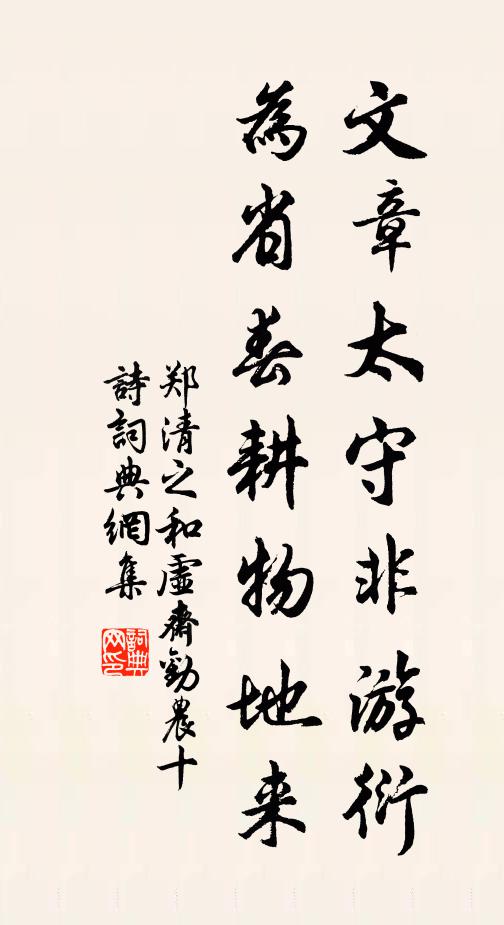 文章太守非游衍
為省春耕物地来
郑清之和虛齋勸農十
詩詞典網集
詞典網印